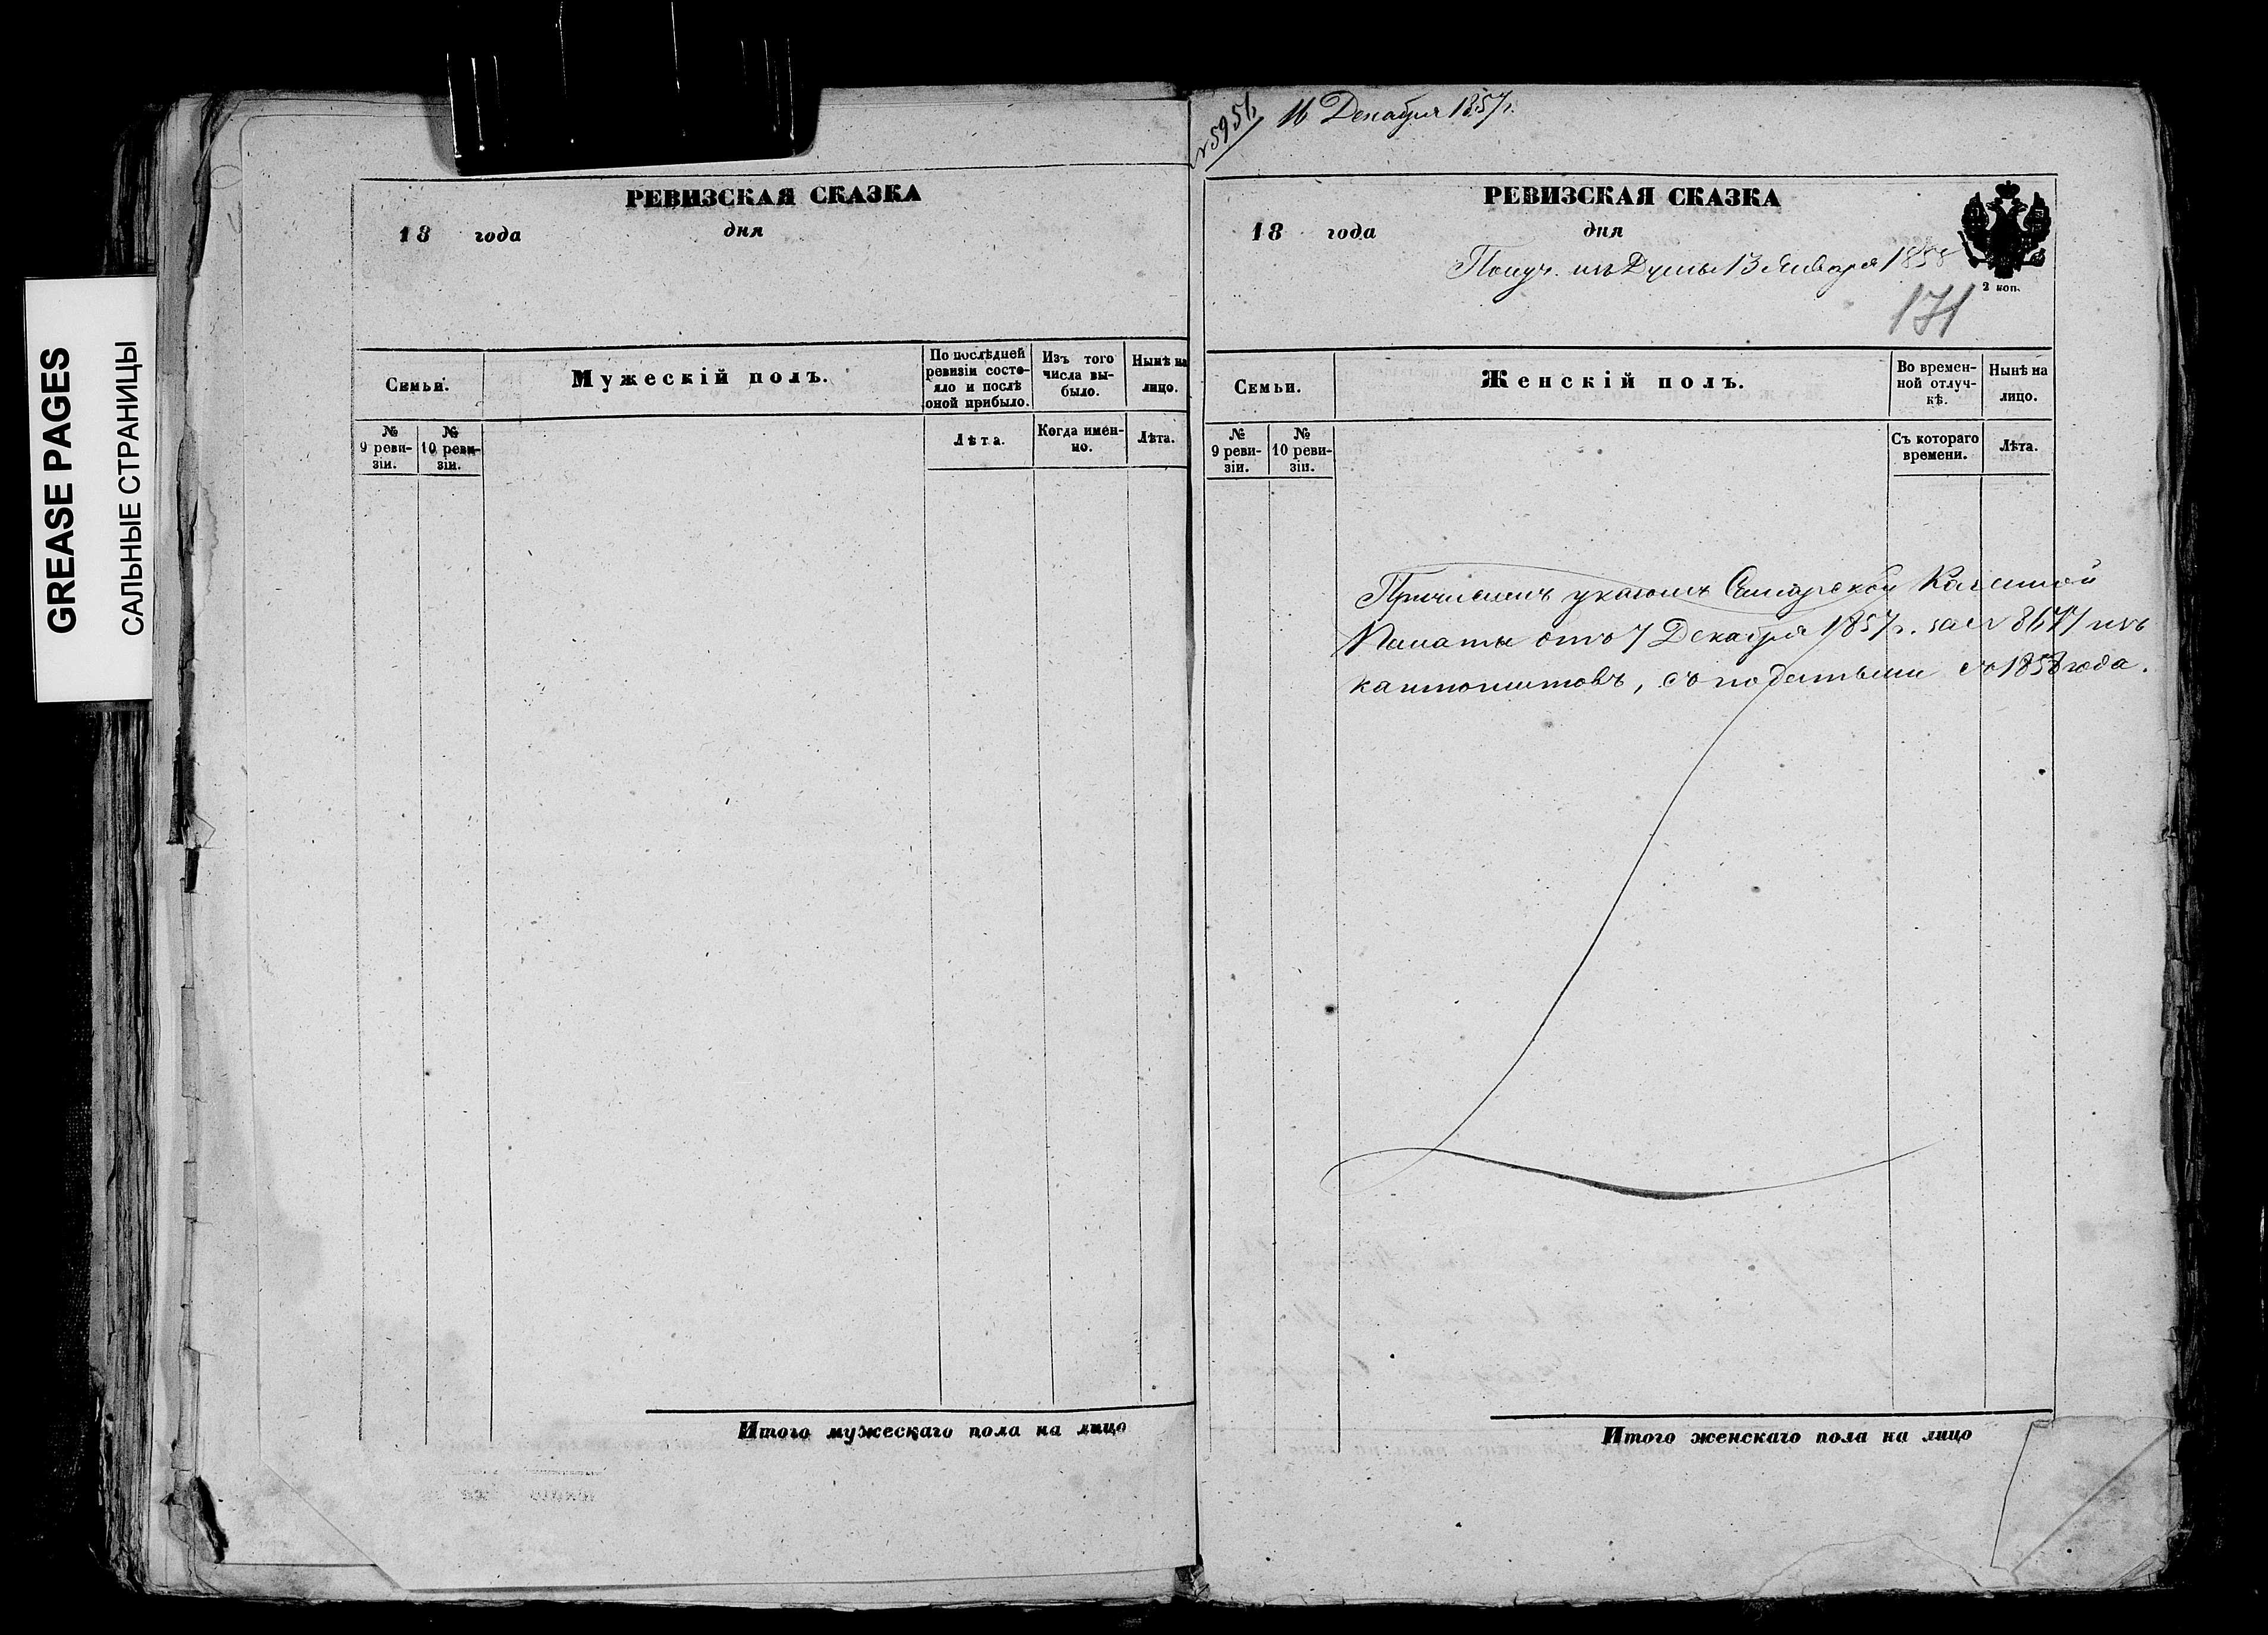 GREASE PAGES
САЛЬНЫЕ СТРАНИЦЫ
РЕВИЗСКАЯ СКАЗКА
18 года дня
Семьи.
Мужескій полъ.
По послѣдней ревизіи состояло и послѣ оной прибыло.
Изъ того числа выбыло.
Нынѣ на лицо.
№ 9 ревизіи.
№ 10 ревизіи.
Лѣта.
Когда именно.
Лѣта.
Итого мужескаго пола на лицо
16 Декабря 1857 г.
РЕВИЗСКАЯ СКАЗКА
18 года дня
Получ. изъ Думы 13 Января 1858
2 коп.
171
Семьи.
Женскій полъ.
Во временной отлучкѣ.
Нынѣ на лицо.
№ 9 ревизіи.
№ 10 ревизіи.
Съ котораго времени.
Лѣта.
Причисленъ указомъ Самарской Казенной
Палаты отъ 7 Декабря 1857 г. за № изъ
кантонистовъ, съ податьми съ 1858 года.
Итого женскаго пола на лицо